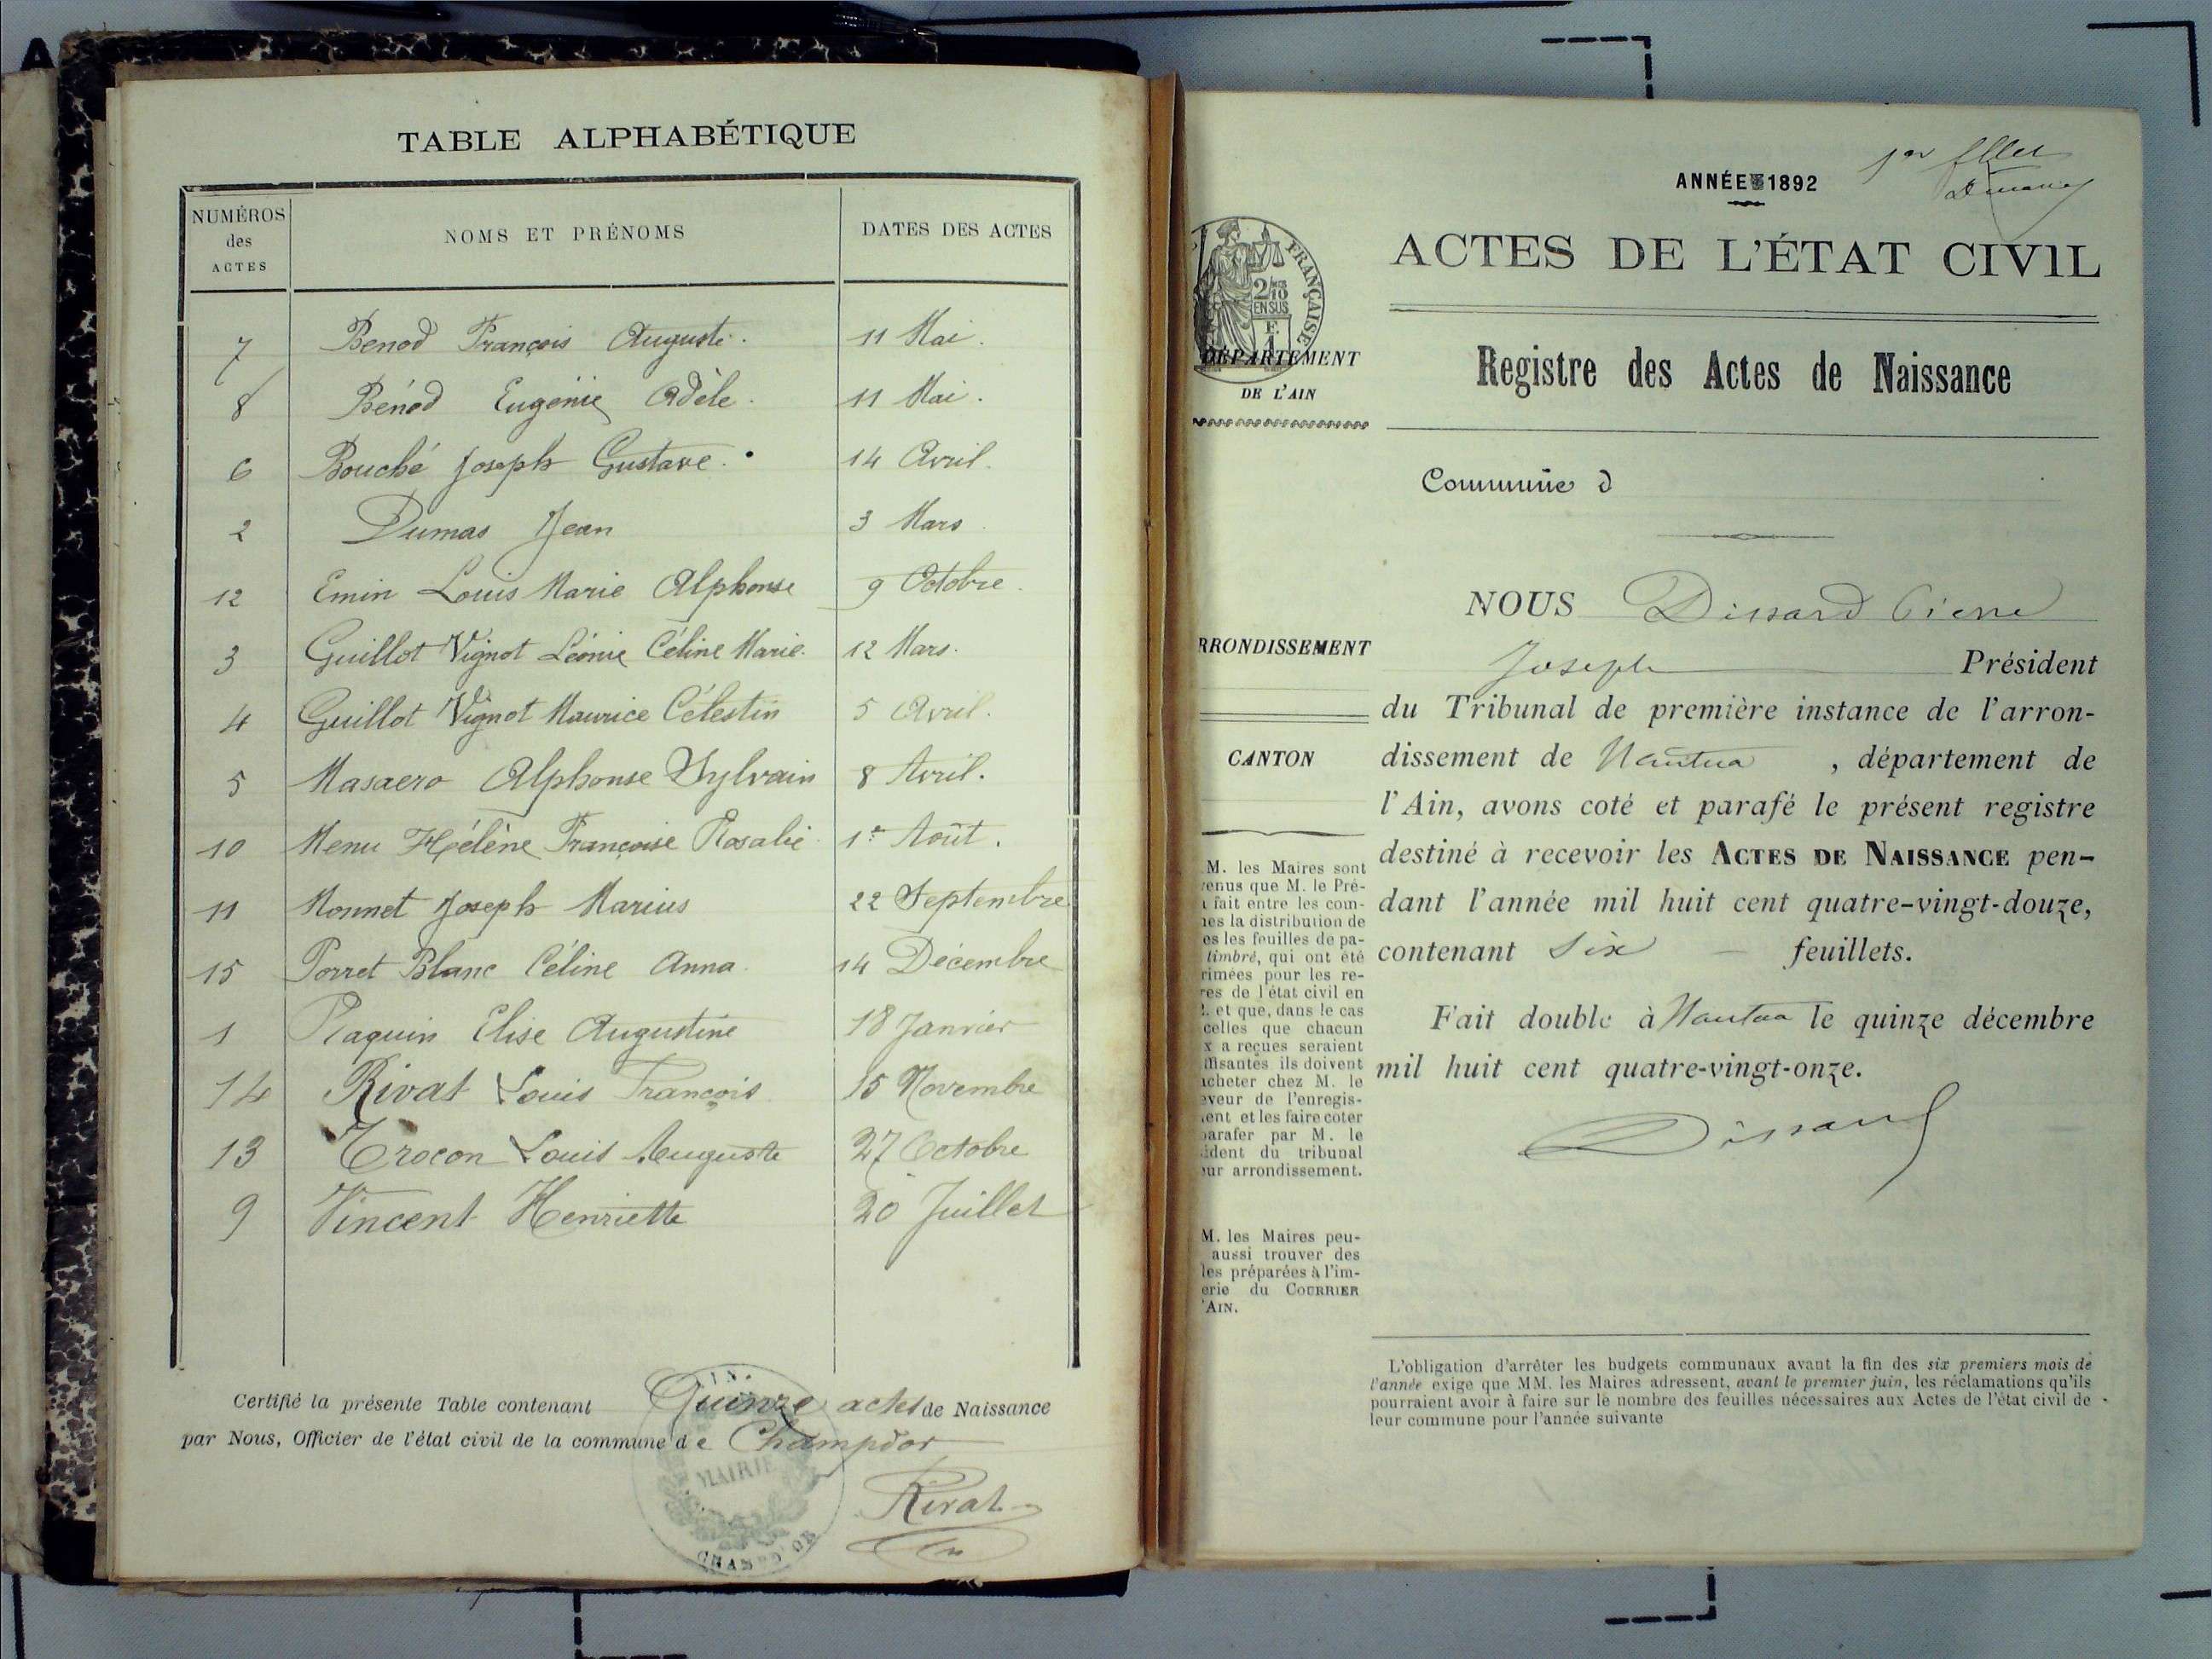 TABLE ALPHABÉTIQUE
NUMÉROS des ACTES | NOMS ET PRÉNOMS | DATES DES ACTES
7 Benod François Auguste. 11 Mai.
8 Bénod Eugénie Adèle. 11 Mai.
6 Bouché Joseph Gustave. 14 Avril.
2 Dumas Jean 3 Mars
12 Emin Louis Marie Alphonse 9 Octobre.
3 Guillot Vignot Léonie Céline Marie. 12 Mars.
4 Guillot Vignot Maurice Célestin 5 Avril.
5 Masaero Alphonse Sylvain 8 Avril.
10 Menu Hélène Françoise Rosalie 1er Août.
11 Monnet Joseph Marius 22 Septembre
15 Porret Blanc Céline Anna 14 Décembre
1 Raquin Elise Augustine 18 Janvier
14 Rivat Louis François 15 Novembre
13 Trocon Louis Auguste 27 Octobre
9 Vincent Henriette 20 Juillet
Certifié la présente Table contenant Quinze actes de Naissance
par Nous, Officier de l'état civil de la commune de Champdor
MAIRIE
Rivat
ANNÉE 1892
1er fllet
ACTES DE L'ÉTAT CIVIL
FRANÇAISE
2/10
EN SUS
DÉPARTEMENT
DE L'AIN
Registre des Actes de Naissance
Commune d
NOUS Dissard Pierre
Joseph Président
du Tribunal de première instance de l'arron-
dissement de Nantua, département de
l'Ain, avons coté et parafé le présent registre
destiné à recevoir les ACTES DE NAISSANCE pen-
dant l'année mil huit cent quatre-vingt-douze,
contenant six — feuillets.
Fait double à Nantua le quinze décembre
mil huit cent quatre-vingt-onze.
Dissard
RRONDISSEMENT
CANTON
M. les Maires sont
enus que M. le Pré-
fait entre les com-
es la distribution de
es les feuilles de pa-
timbré, qui ont été
rimées pour les re-
res de l'état civil en
et que, dans le cas
celles que chacun
x a reçues seraient
ffisantes ils doivent
acheter chez M. le
eveur de l'enregis-
ent et les faire coter
parafer par M. le
ident du tribunal
eur arrondissement.
M. les Maires peu-
aussi trouver des
les préparées à l'im-
erie du COURRIER
'AIN.
L'obligation d'arrêter les budgets communaux avant la fin des six premiers mois de
l'année exige que MM. les Maires adressent, avant le premier juin, les réclamations qu'ils
pourraient avoir à faire sur le nombre des feuilles nécessaires aux Actes de l'état civil de
leur commune pour l'année suivante